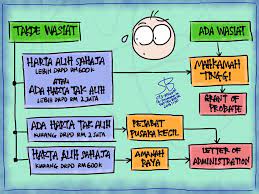 TAKDE WASIAT
ADA WASIAT
HARTA ALIH SAHAJA
LEBIH DRPD RM 600K
ATAU
ADA HARTA TAK ALIH
LEBIH DRPD RM 2 JUTA
MAHKAMAH
TINGGI
GRANT OF
PROBATE
ADA HARTA TAK ALIH
KURANG DRPD RM 2 JUTA
PEJABAT
PUSAKA KECIL
HARTA ALIH SAHAJA
KURANG DRPD RM 600K
AMANAH
RAYA
LETTER OF
ADMINISTRATION